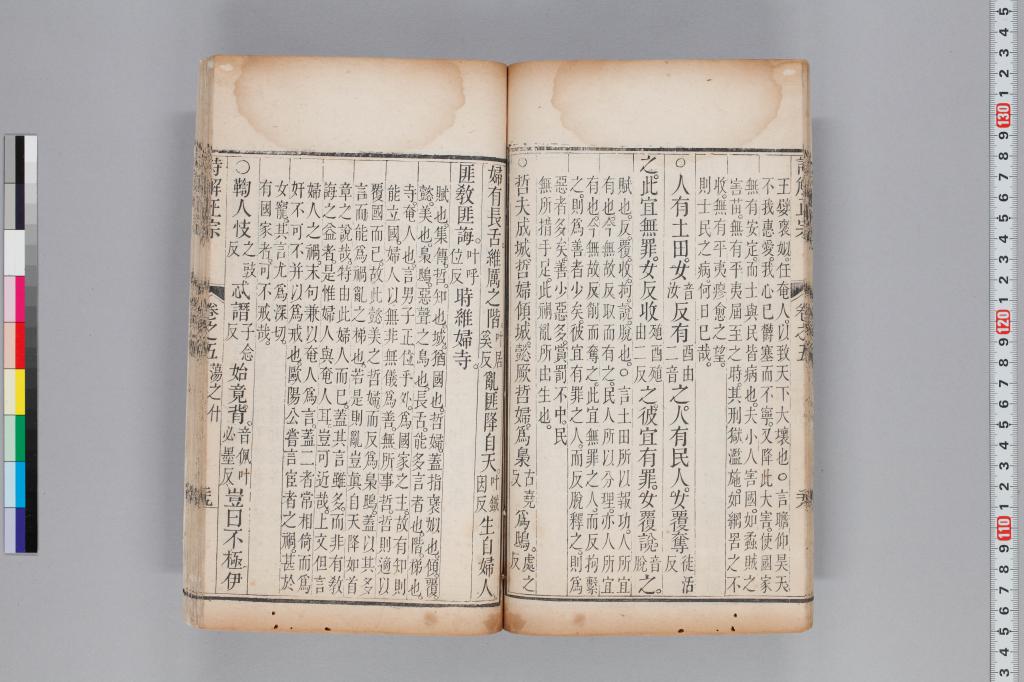 詩解正宗 卷之五
王嬖褒姒任奄人以致天下大壞也○言瞻仰昊天
不我惠愛我心已鬱塞而不寧又降此大害使國家
無有安定而士與民皆病也夫小人害國如蟊賊之
害苗無有平夷屆至之時其刑獄濫施如網罟之不
收無有平夷瘳愈之望
則士民之病何日已哉
○人有土田女音汝反有酉由二音之人有民人女覆奪徒活反
之此宜無罪女反收殖酉殖由二反之彼宜有罪女覆說音脫之
賦也反覆收拘說脫也○言土田所以報功人所宜
有也今無故反取而有之民人所以分理亦人所宜
有也今無故反削而奪之此宜無罪之人而反拘繫
之則為善者少矣彼宜有罪之人而反脫釋之則為
惡者多矣善少惡多賞罰不中民
無所措手足此禍亂所由生也
○哲夫成城哲婦傾城懿厥哲婦為梟古堯反為鴟處之反
婦有長舌維厲之階叶居奚反亂匪降自天叶鐵因反生自婦人
匪教匪誨叶呼位反時維婦寺
賦也集傳哲知也城猶國也哲婦蓋指褒姒也傾覆
懿美也梟鴟惡聲之鳥也長舌能多言者也階梯也
寺奄人也言男子正位乎外為國家之主故有知則
能立國婦人以無非無儀為善無所事哲哲則適以
覆國而已故此懿美之哲婦而反為梟鴟蓋以其多
言而能為禍亂之梯也若是則亂豈眞自天降如首
章之說哉特由此婦人而已蓋其言雖多而非有教
誨之益者是惟婦人與奄人耳豈可近哉上文但言
婦人之禍末句兼以奄人為言蓋二者常相倚而為
奸不可不并以為戒也歐陽公嘗言宦者之禍甚於
女寵其言尤為深切
有國家者可不戒哉
○鞫人忮之豉反忒譖子念反始竟背音佩叶必墨反豈曰不極伊
詩解正宗 卷之五 蕩之什